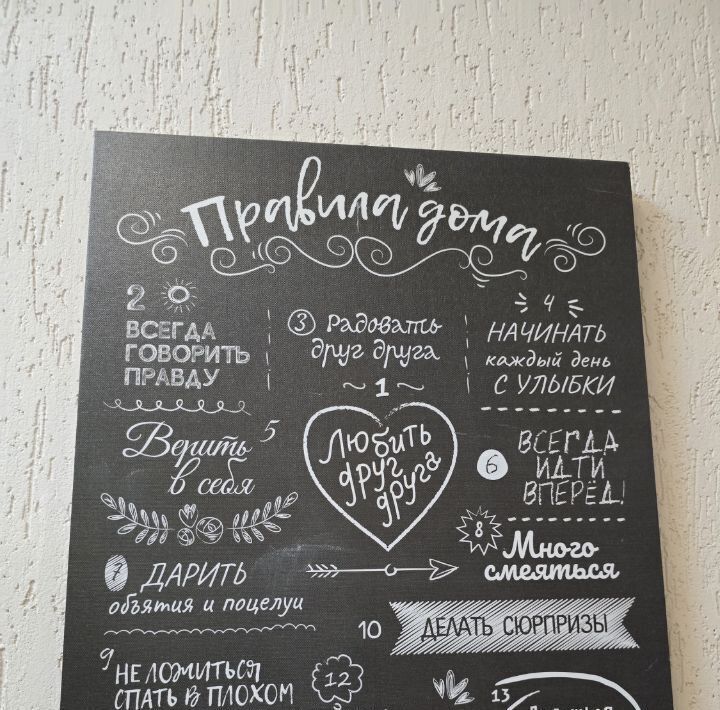 Правила дома
2
ВСЕГДА
ГОВОРИТЬ
ПРАВДУ
3 Радовать
друг друга
4
НАЧИНАТЬ
каждый день
С УЛЫБКИ
1
Любить
друг
друга
5
Верить
в себя
6
ВСЕГДА
ИДТИ
ВПЕРЁД!
7 ДАРИТЬ
объятия и поцелуи
8
Много
смеяться
10 ДЕЛАТЬ СЮРПРИЗЫ
9
НЕ ЛОЖИТЬСЯ
СПАТЬ В ПЛОХОМ
12
13